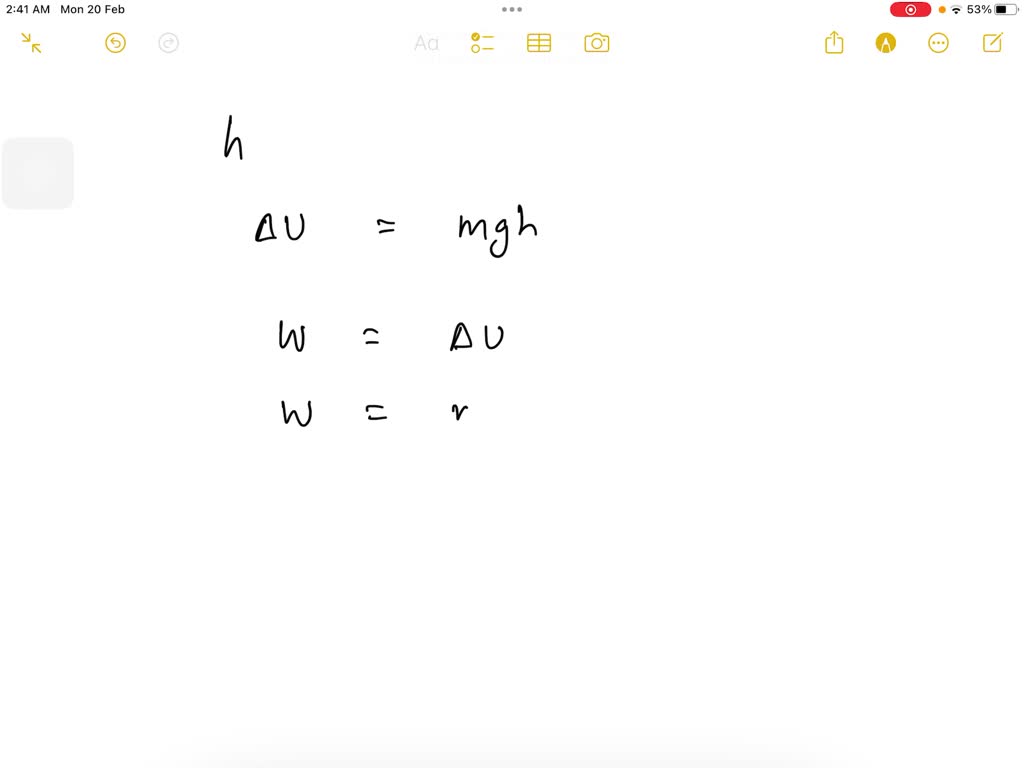 2:41 AM Mon 20 Feb 53%
Aa
h
ΔU = mgh
W = ΔU
W = r